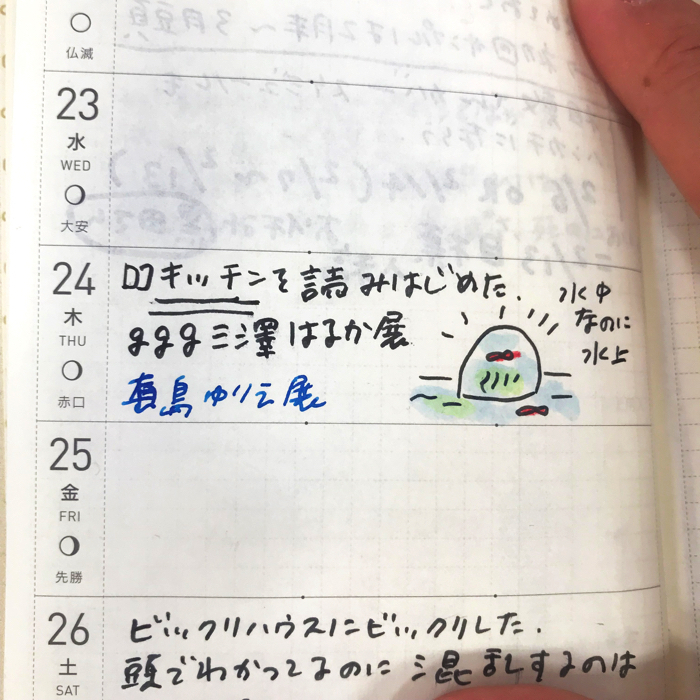 仏滅
23
水
WED
大安
24
木
THU
赤口
キッチンを読みはじめた.
ggg 三澤はるか展
島ゆり子展
水中
なのに
水上
25
金
FRI
先勝
26
土
SAT
ビックリハウスにビックリした.
頭でわかってるのに混乱するのは